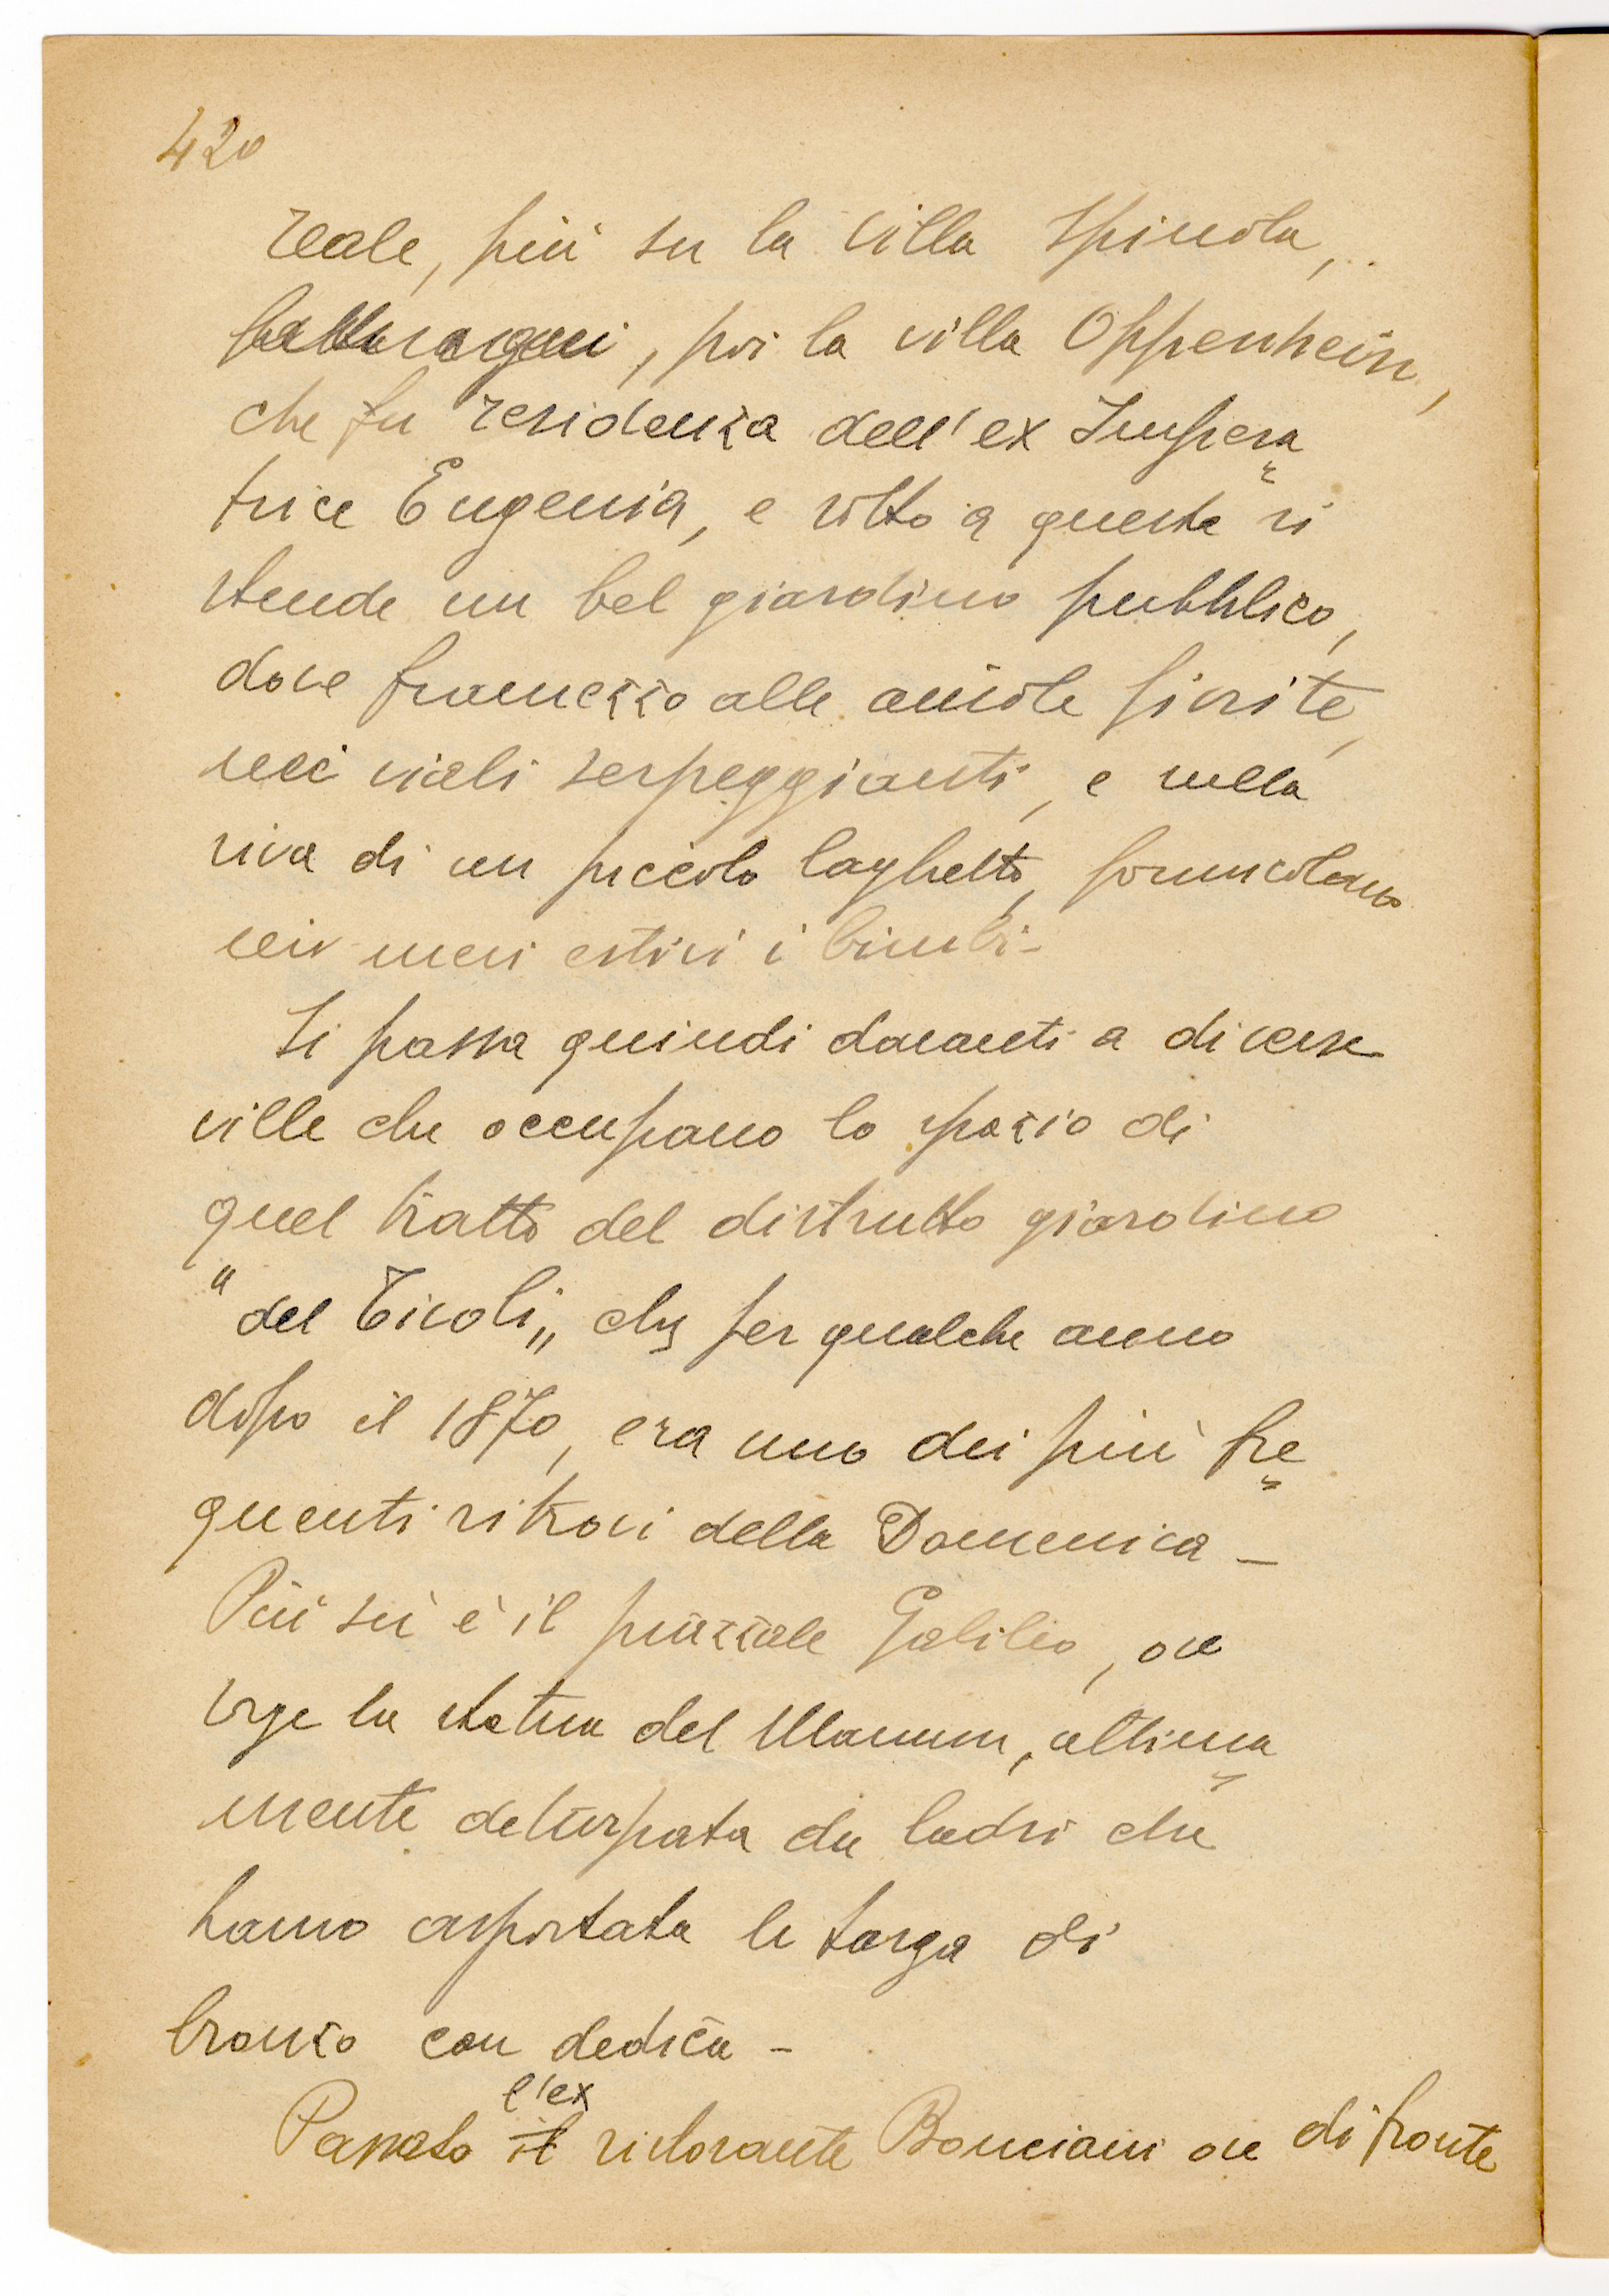 420
reale, più su la villa Spinola,
poi la villa Oppenheim,
che fu residenza dell'ex Impera=
trice Eugenia, e sotto a questa si
stende un bel giardino pubblico,
dove framezzo alle aiuole fiorite,
nei viali serpeggianti, e sulla
riva di un piccolo laghetto, formicolano
nei mesi estivi i bimbi-
Si passa quindi davanti a diverse
ville che occupano lo spazio di
quel tratto del distrutto giardino
"del Tivoli„ che per qualche anno
dopo il 1870, era uno dei più fre=
quenti ritrovi della Domenica -
Più su è il piazzale Galileo, ove
sorge la statua del, ultima=
mente deturpata da ladri che
hanno asportata la targa di
bronzo con dedica -
Passato l'ex il ristorante Bonciani ove di fronte